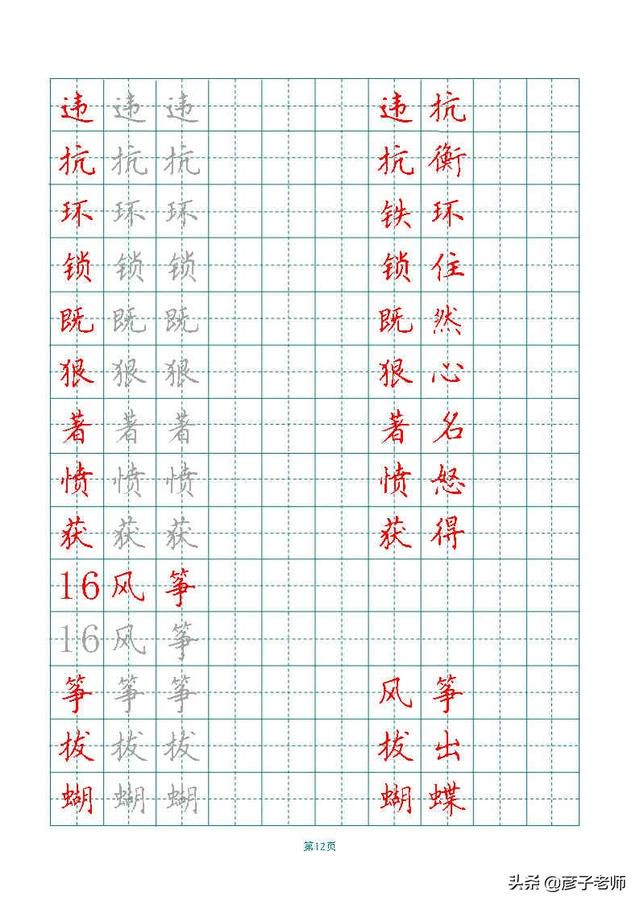 违违违 违抗
抗抗抗 抗衡
环环环 铁环
锁锁锁 锁住
既既既 既然
狠狠狠 狠心
著著著 著名
愤愤愤 愤怒
获获获 获得
16风筝
16风筝
筝筝筝 风筝
拔拔拔 拔出
蝴蝴蝴 蝴蝶
第12页
头条 @彦子老师